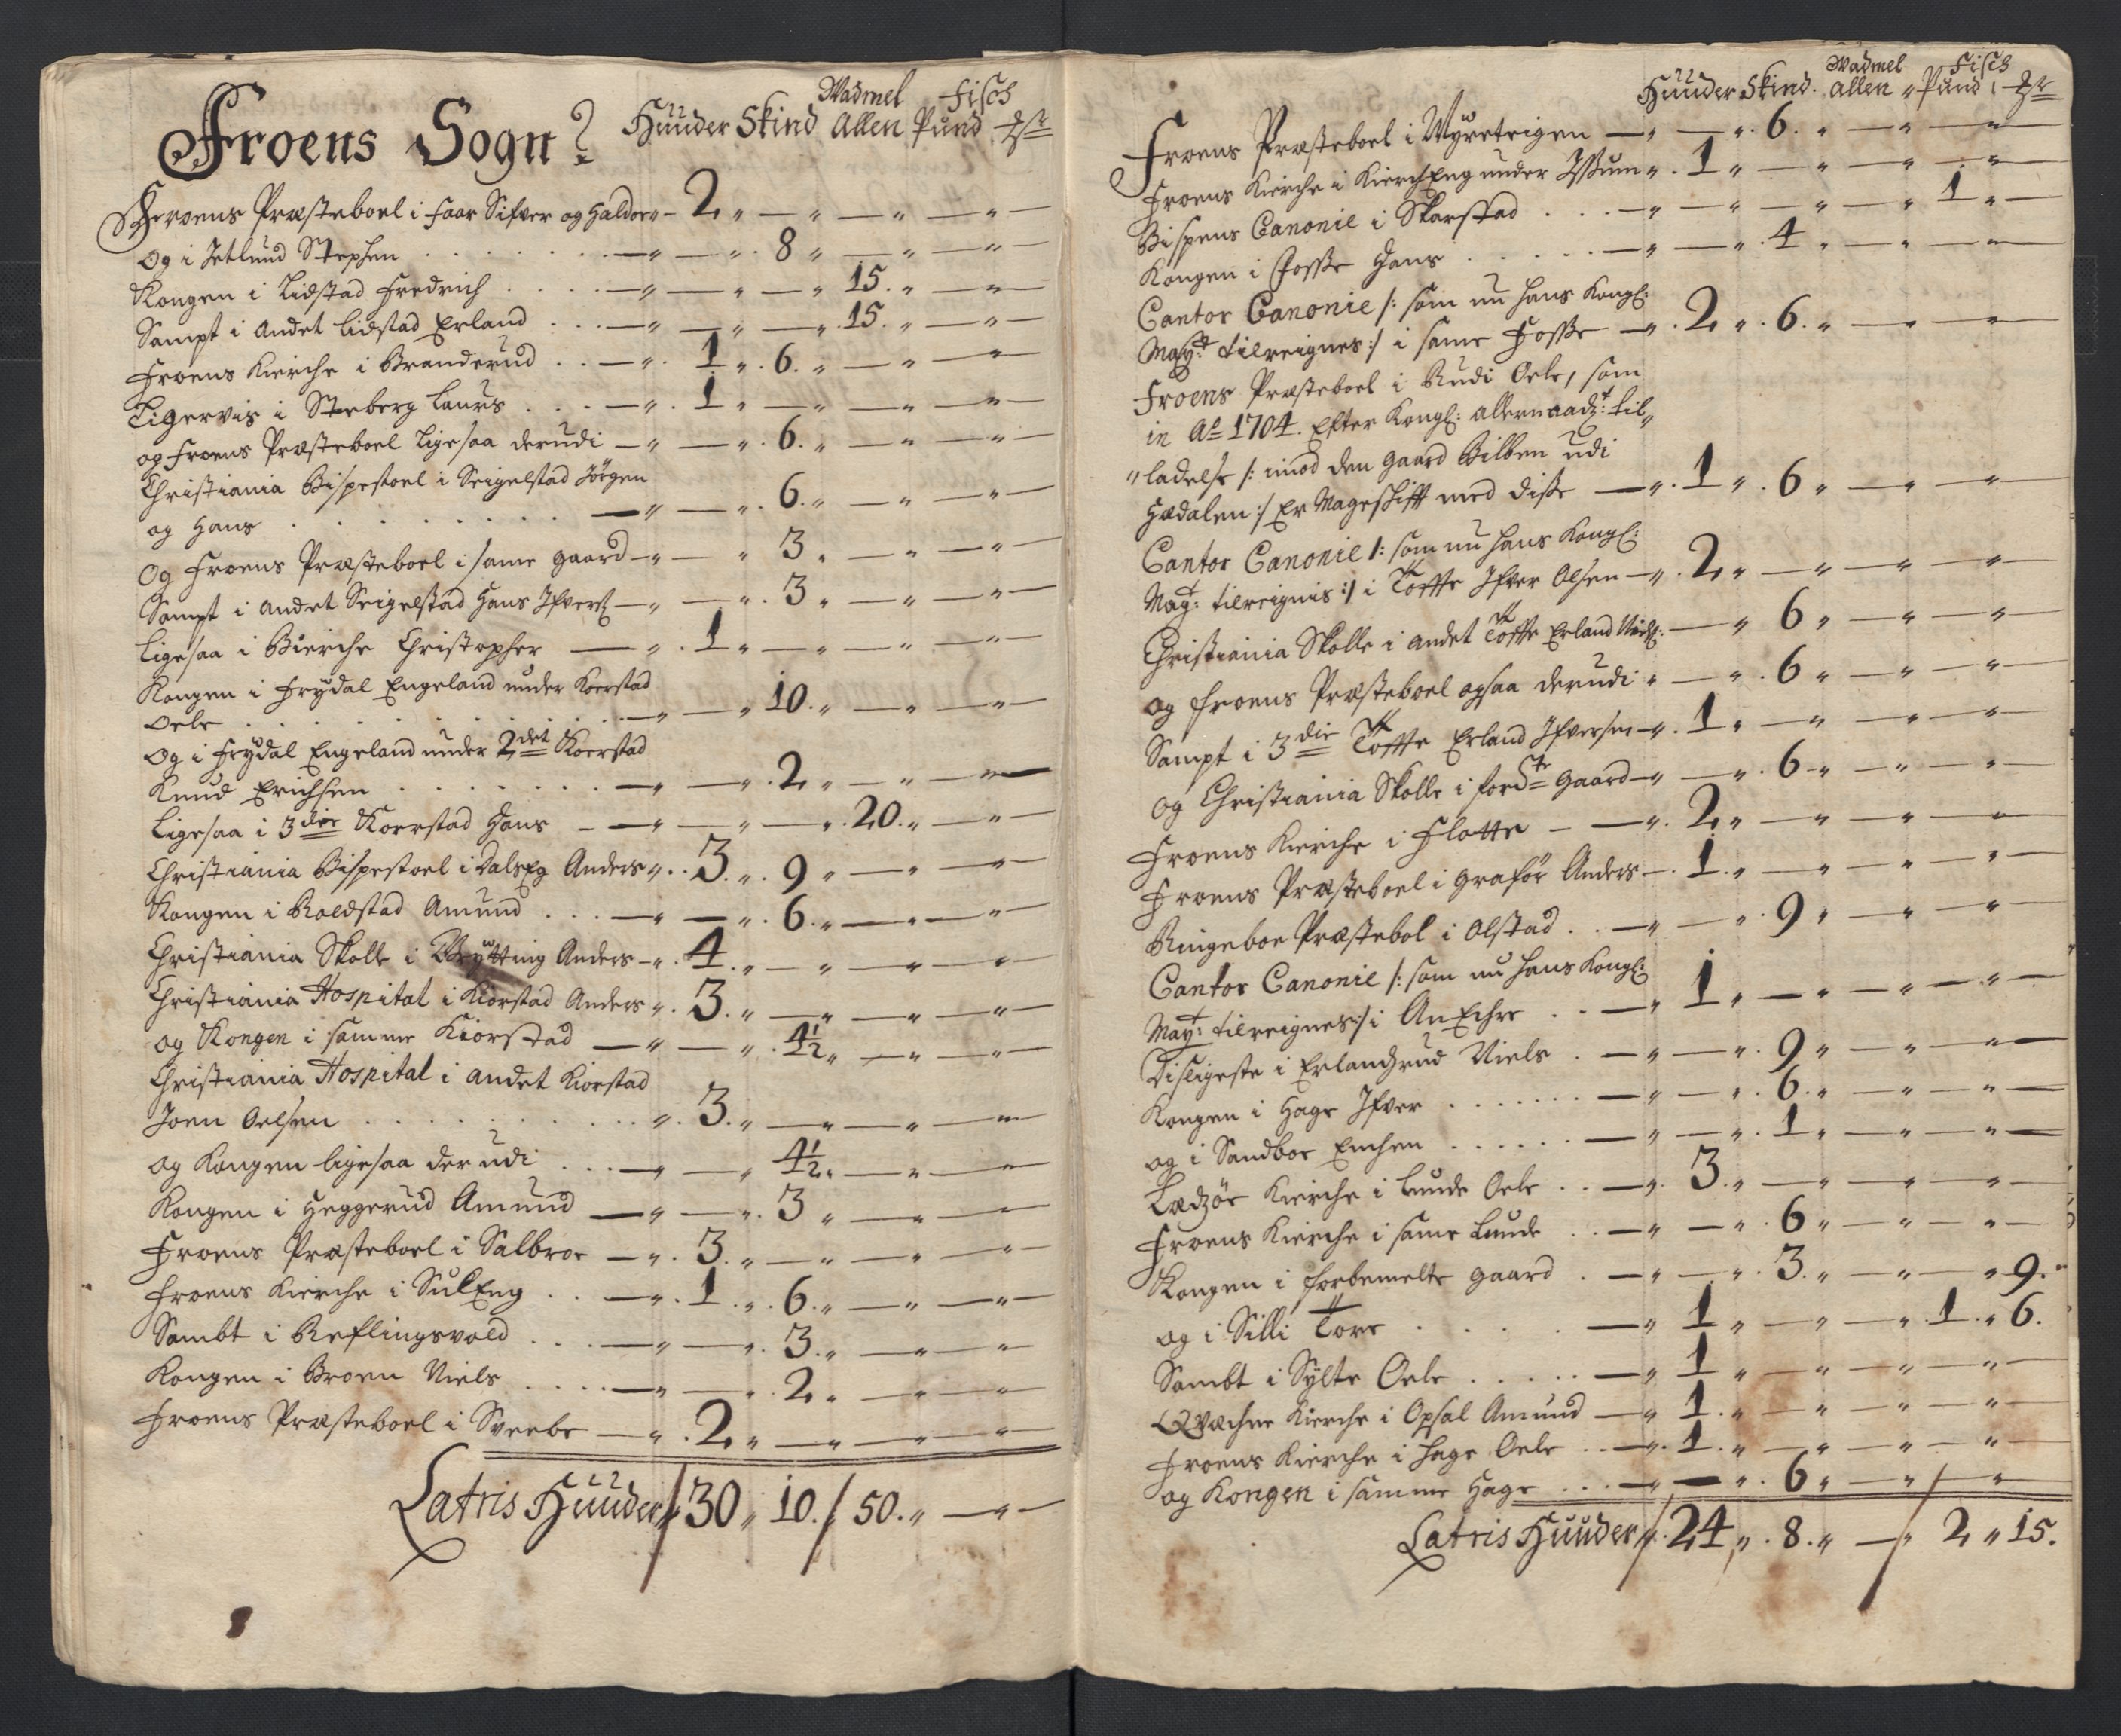 Froens Sogn
Hüuder Skind Wadmel Allen Fisch Pund
Froens Præsteboel i Faar Sifver og Haldor 2
Og i Jetlund Stephen 8
Kongen i Lidstad Fredrich 15.
Sampt i Andet Lidstad Erland 15.
Froens Kierche i Branderud 1 6.
Tigervis i Steberg Laurs 1
og Froens Præsteboel Ligesaa derudi 6.
Christiania Bispestoel i Seigelstad Jörgen
og Hans 6.
Og Froens Præsteboel i same gaard 3
Sampt i Andet Seigelstad Hans Ifvers: 3
Ligesaa i Bierche Christopher 1
Kongen i Frydal Engeland under Koerstad
Oele 10.
Og i Frydal Engeland under 2det Koerstad
Knud Erichsen 2
Ligesaa i 3die Koerstad Hans 20.
Christiania Bispestoel i Dalseg Anders 3. 9
Kongen i Roldstad Amund 6.
Christiania Skolle i Brytting Anders 4.
Christiania Hospital i Kiorstad Anders 3.
og Kongen i samme Kiorstad 4½
Christiania Hospital i andet Kiorstad
Joen Oelsen 3.
og Kongen ligesaa der udi 4½
Kongen i Heggerud Amund 3
Froens Præsteboel i Salbroe 3.
Froens Kierche i SulEng 1 6.
Sambt i Reflingsvold 3.
Kongen i Broen Niels 2
Froens Præsteboel i Sveebe 2
Latris Hüuder 30 10. 50.
Hüuder Skind. Wadmel Allen Fisch Pund
Froens Præsteboel i Wyretrigen 6.
Froens Kierche i KierchEng under Issum 1
Bispens Canonie i Skarstad 1
Kongen i Fosse Hans 4
Cantor Canonie /: som nu Hans Kongl:
Mayt: tilreignes :/ i same Fosse 2 6.
Froens Præsteboel i Rudi Oele, som
in Ao 1704. Efter Kongl: allernaadt: til
ladelse /: imod den gaard Bilben udi
Hædalen :/ Er Mageskifft med disse 1 6
Cantor Canonie /: som nu Hans Kongl:
Mayt: tilreignis :/ i Töffte Ifver Olsen 2
Christiania Skolle i andet Töffte Erland Niels: 6
og Froens Præsteboel ogsaa derudi 6
Sampt i 3die Töffte Erland Ifversen 1
og Christiania Skolle i fordte gaard 6
Froens Kierche i Flotte 2
Froens Præsteboel i Graför Anders 1.
Ringeboe Præstebol i Olstad 9
Cantor Canonie /: som nu Hans Kongl:
Mayt: tilreignes :/ i AnEchre 1
Disligeste i Erlandzrud Niels 9
Kongen i Hage Ifver 6.
og i Sandboe Emchen 1
Ledzöe Kierche i Lunde Oele 3.
Froens Kierche i same Lunde 6
Kongen i forbemelte gaard 3. 9.
og i Silli Tore 1 1. 6.
Sambt i Sylte Oele 1
Qvæchne Kierche i Opsal Amund 1.
Froens Kierche i Hage Oele 1.
og Kongen i samme Hage 6
Latris Hüuder 24 8. 2 15.